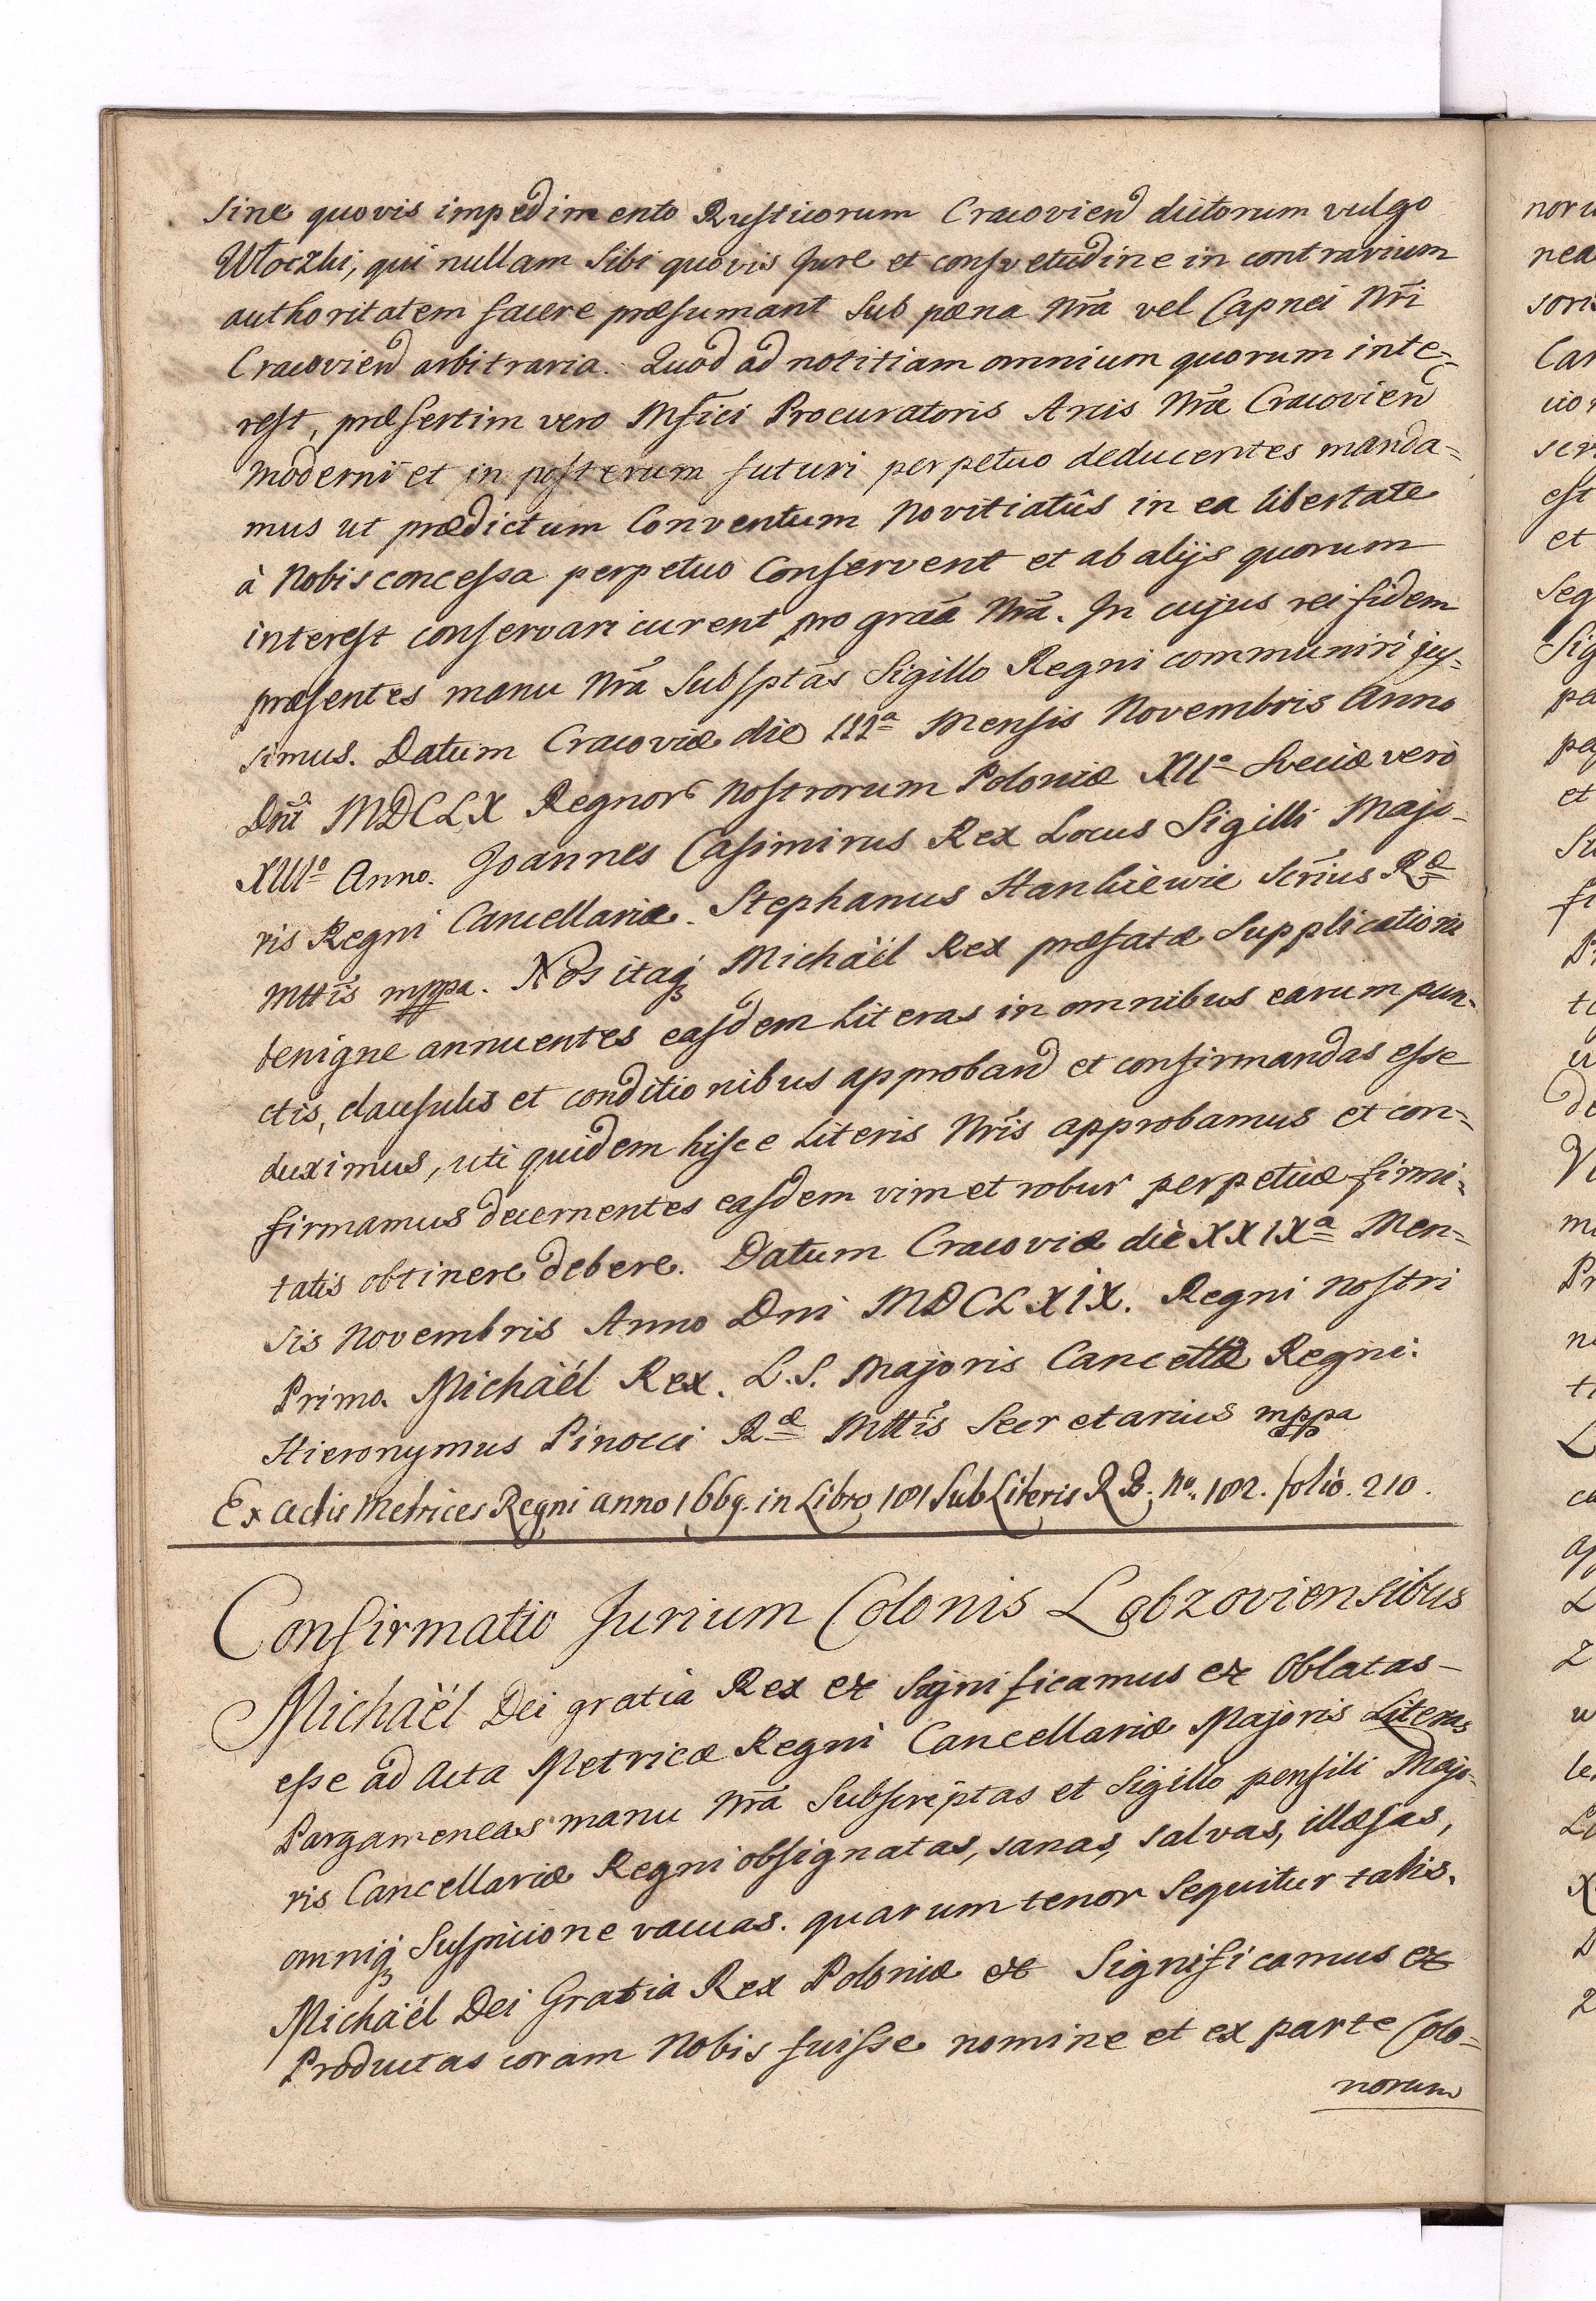 sine quovis impedimento Rusticorum Cracovien dictorum vulgo
Włoczki, qui nullam sibi quovis Jure et consvetudine in contrarium
authoritatem facere præsumant sub pæna Nrã vel Capnei Nrĩ
Cracovien arbitraria. Quod ad notitiam omnium quorum inte=
rest, præsertim vero Mficĩ Procuratoris Arcis Nræ̃ Cracovien
moderni et in posterum futuri perpetuo deducentes manda=
mus ut prædictum Conventum Novitiatûs in ea libertate
à Nobis concessa perpetuo Conservent et ab alijs quorum
interest conservari curent pro graã Nrã. In cujus rei fidem
præsentes manu Nrã Subsptãs Sigillo Regni communiri jus=
simus. Datum Cracoviæ die IIIa Mensis Novembris Anno
Dnĩ MDCLX Regnor Nostrorum Poloniæ XIIo Sveciæ verò
XIIIo Anno. Joannes Casimirus Rex Locus Sigilli Majo-
ris Regni Cancellariæ. Stephanus Hankiewic Scrĩus Ræ
Mttĩs mppa. Nos itaq Michaël Rex præfatæ Supplicationi
benigne annuentes easdem Literas in omnibus earum pun=
ctis, clausulis et conditionibus approband et confirmandas esse
duximus, uti quidem hisce Literis Nrĩs approbamus et con=
firmamus decernentes easdem vim et robur perpetuæ firmi=
tatis obtinere debere. Datum Cracoviæ diè XXIXa Men=
sis Novembris Anno Dni MDCLXIX. Regni Nostri
Primo. Michaël Rex. L.S. Majoris Cancellæ Regni.
Hieronymus Pinocci Ræ Mttĩs Secretarius mppa
Ex actis Metrices Regni anno 1669. in Libro 181 Sub Literis R B. No. 182. folió. 210.
Confirmatio Jurium Colonis Lobzoviensibus
Michaël Dei gratiâ Rex &c Significamus &c Oblatas
esse ad Acta Metricæ Regni Cancellariæ Majoris Literas
Pargameneas manu Nrã Subscriptas et Sigillo pensili Majo-
ris Cancellariæ Regni obsignatas, sanas, salvas, illæsas,
omniq Suspicione vacuas. quarum tenor Sequitur talis.
Michaël Dei Gratia Rex Poloniæ &c Significamus &c
Productas coram Nobis fuisse nomine et ex parte Colo=
norum